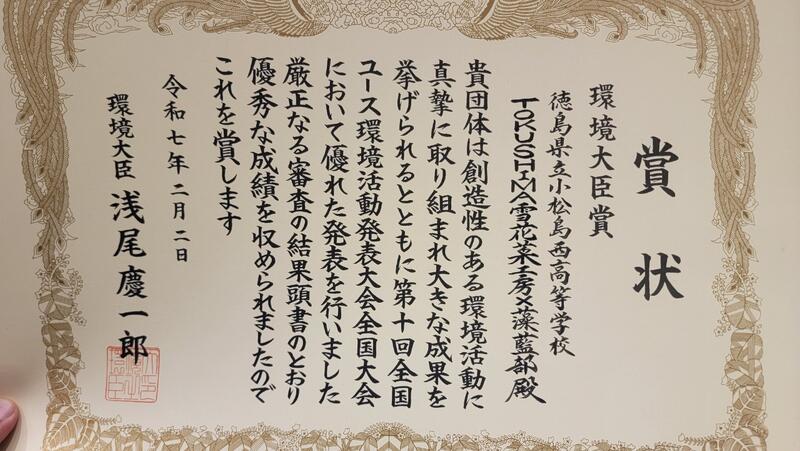 賞状
環境大臣賞
徳島県立小松島西高等学校
TOKUSHIMA雪花菜工房×藻藍部殿
貴団体は創造性のある環境活動に
真摯に取り組まれ大きな成果を
挙げられるとともに第十回全国
ユース環境活動発表大会全国大会
において優れた発表を行いました
厳正なる審査の結果頭書のとおり
優秀な成績を収められましたので
これを賞します
令和七年二月二日
環境大臣 浅尾慶一郎